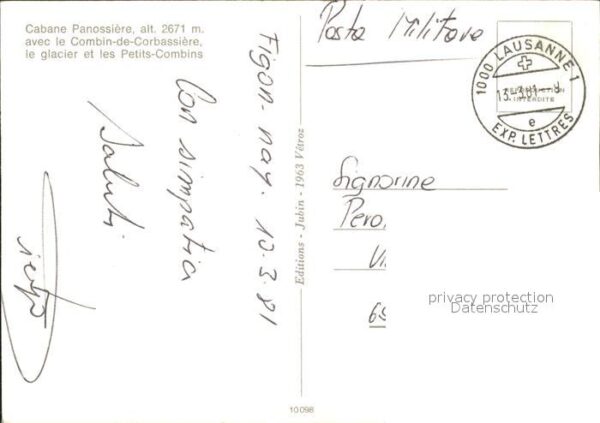 Cabane Panossière, alt. 2671 m.
avec le Combin-de-Corbassière,
le glacier et les Petits-Combins
10.3.81
Con simpatia
Saluti
Editions - Jubin - 1963 Vétroz
10098
Posta Militare
1000 LAUSANNE 1
13.-3.81.-8
e
EXP. LETTRES
REPRODUCTION
INTERDITE
Signorine
Pero
Vi
69
privacy protection
Datenschutz